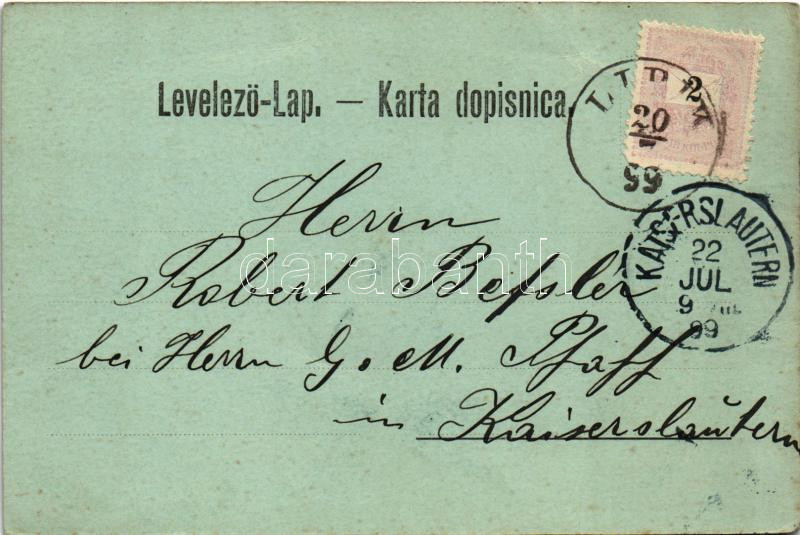 Levelező-Lap. — Karta dopisnica.
2
LIPIK
20
99
KAISERSLAUTERN
22
JUL
9
99
Herrn
darabanth
Robert Beßler
bei Herrn G. M. Pfaff
in Kaiserslautern